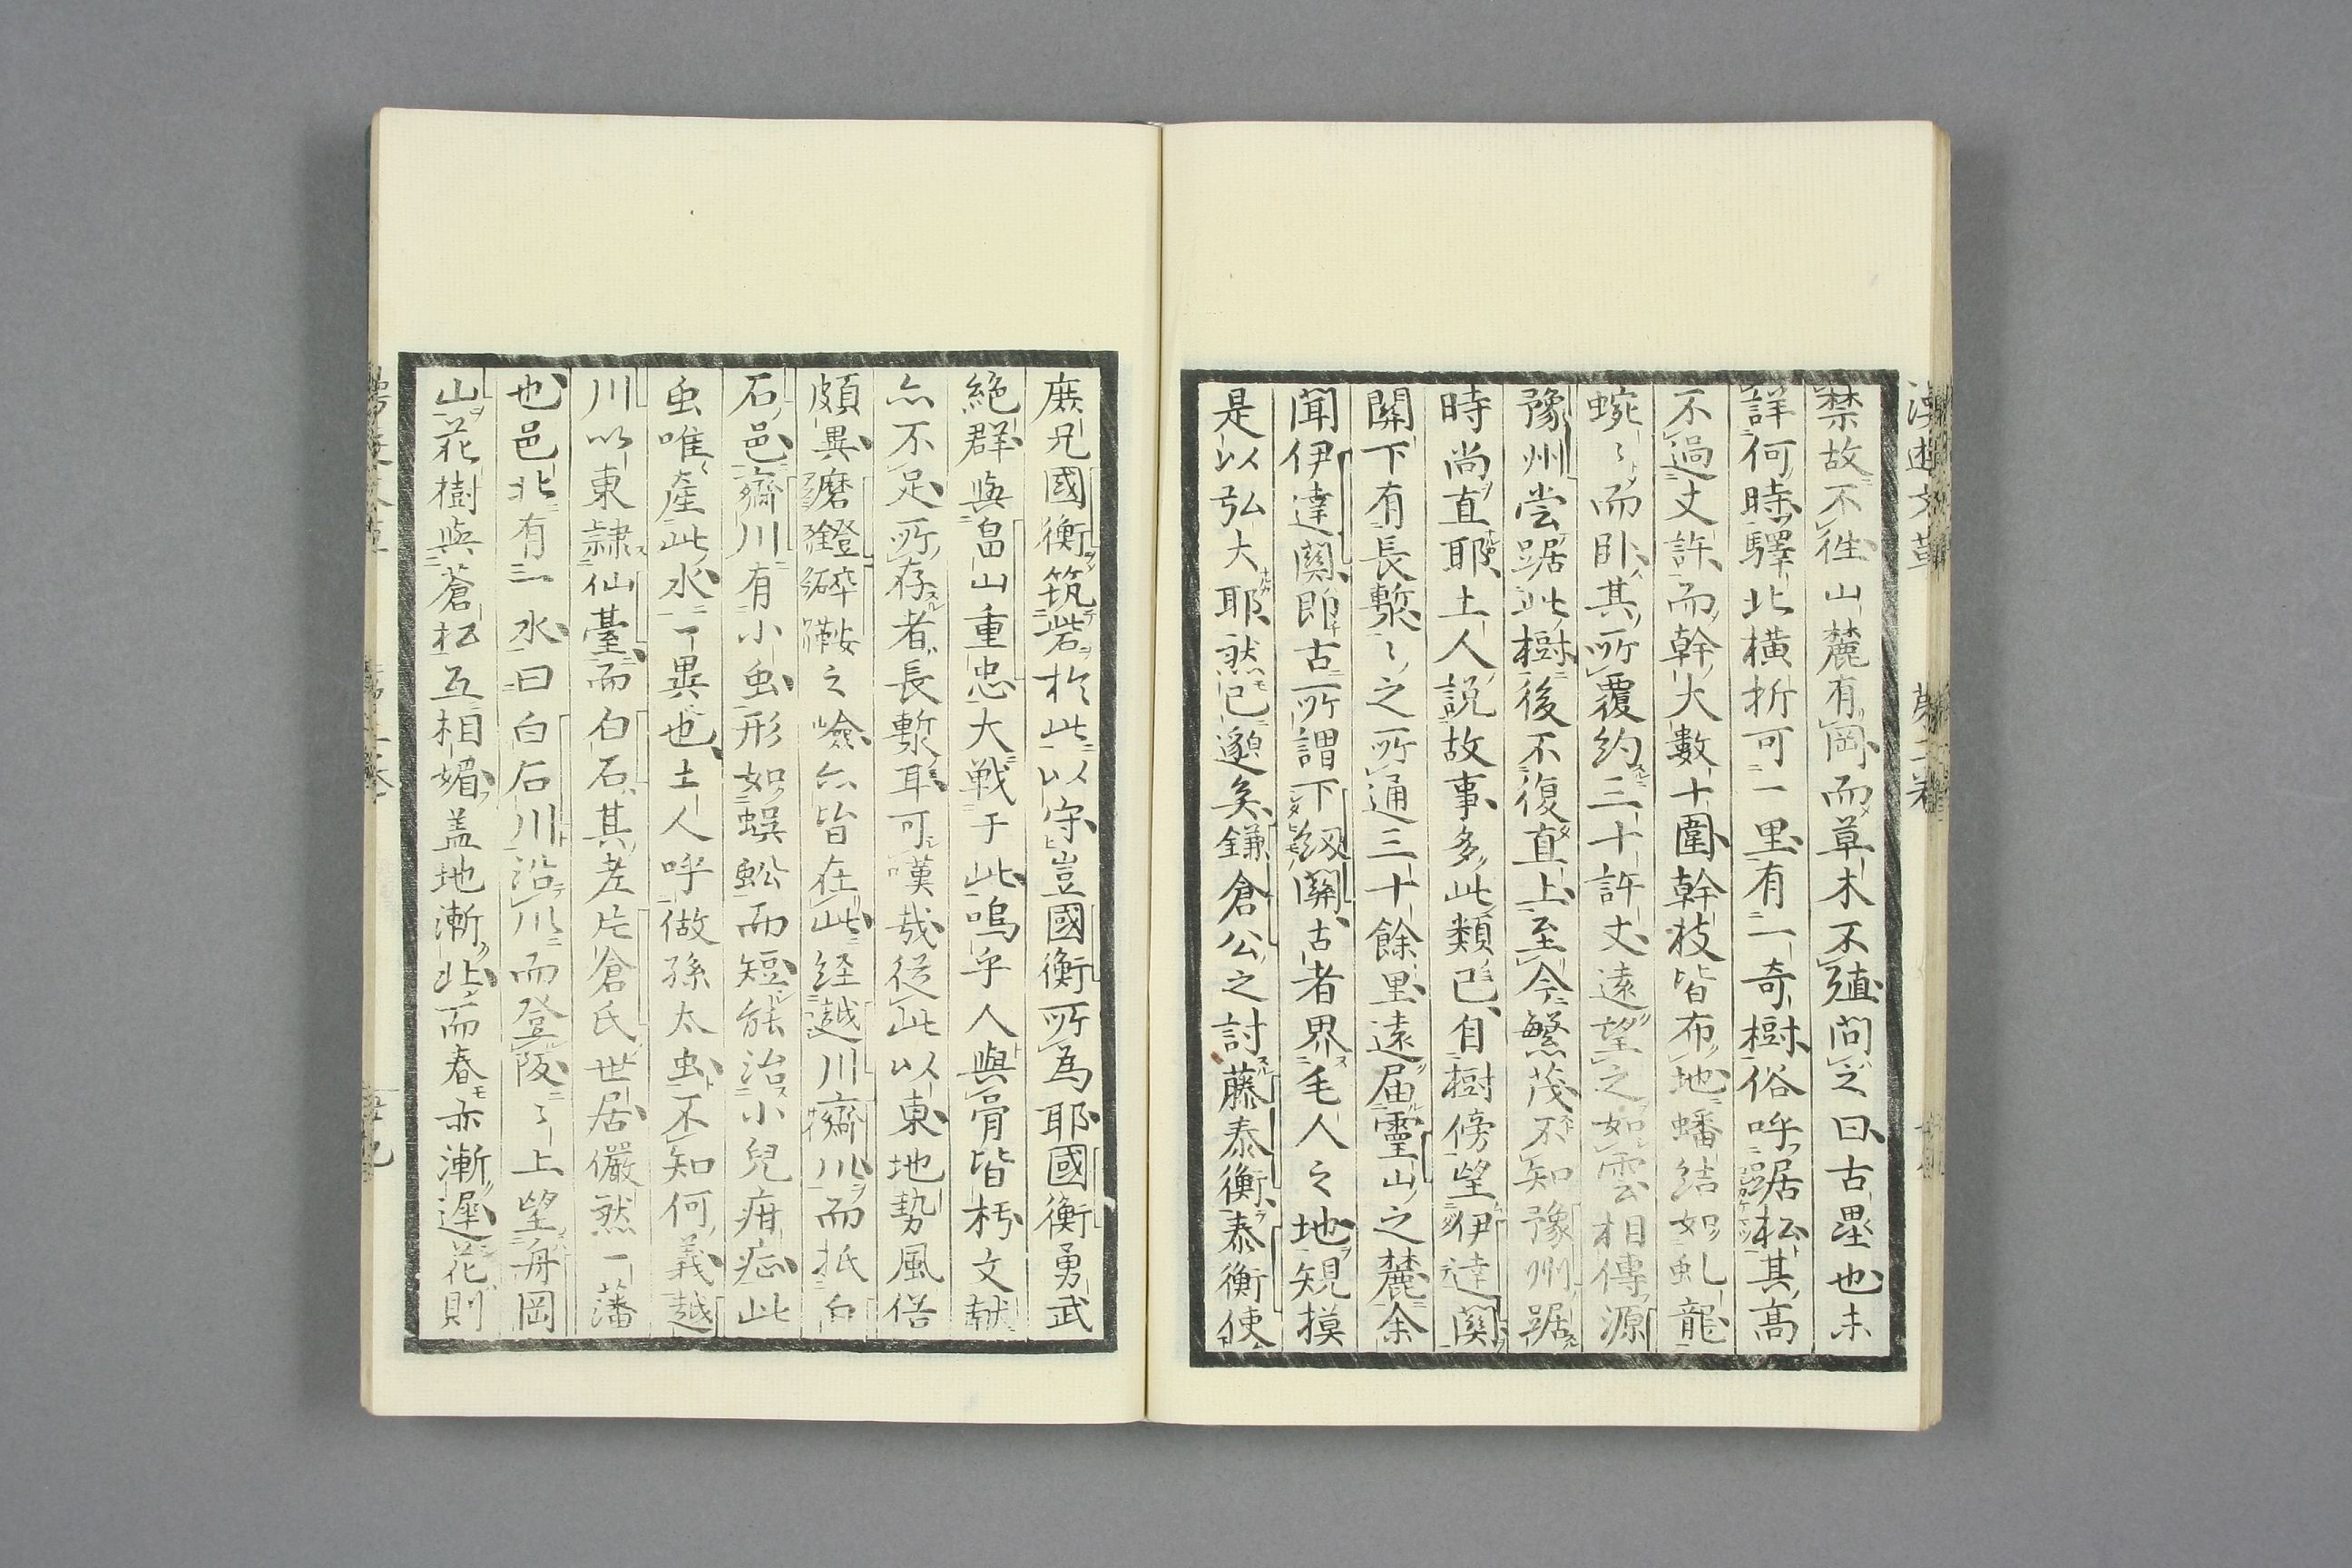 禁故不徃山麓有岡而草木不殖問之曰古壘也未
詳何時驛北橫折可一里有一奇樹俗呼踞松其高
不過丈許而幹大數十圍幹枝皆布地蟠結如虬龍
蜿〻而臥其所覆約三十許丈遠望之如雲相傳源
豫州嘗踞此樹後不復直上至今繁茂不知豫州踞
時尚直耶土人說故事多此類已自樹傍望伊達関
關下有長塹〻之所通三十餘里遠届靈山之麓余
聞伊達関即古所謂下紐關古者界毛人之地規摸
是以弘大耶然已邈矣鎌倉公之討藤泰衡泰衡使
庶兄國衡筑砦於此以守豈國衡所為耶國衡勇武
絕群與畠山重忠大戰于此嗚乎人與骨皆朽文献
亦不足所存者長塹耳可嘆哉從此以東地勢風俗
頗異礳鐙碎鞍之嶮亦皆在此経越川齊川而抵白
石邑齊川有小虫形如蜈蚣而短能治小兒疳痣此
虫唯產此水一異也土人呼做孫太虫不知何義越
川以東隸仙臺而白石其差片倉氏世居儼然一藩
也邑北有一水曰白石川沿川而登阪〻上望舟岡
山花樹與蒼松互相媚盖地漸北而春亦漸遲花則